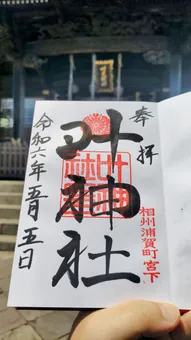 奉拝
相州浦賀町宮下
叶神社
令和六年五月五日